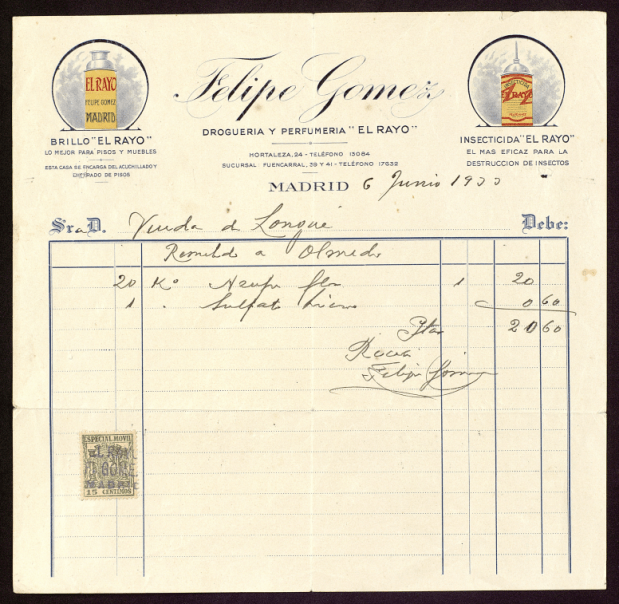 EL RAYO
FELIPE GOMEZ
MADRID
BRILLO "EL RAYO"
LO MEJOR PARA PISOS Y MUEBLES
ESTA CASA SE ENCARGA DEL ACUCHILLADO Y
ENCERADO DE PISOS
Felipe Gomez
DROGUERIA Y PERFUMERIA "EL RAYO"
HORTALEZA, 24 - TELÉFONO 13064
SUCURSAL FUENCARRAL, 39 Y 41 - TELÉFONO 17632
INSECTICIDA
EL RAYO
INSECTICIDA "EL RAYO"
EL MAS EFICAZ PARA LA
DESTRUCCION DE INSECTOS
MADRID 6 Junio 1933
Sra D. Viuda d Longué Debe:
Remitido a Olmedo
20 Ko Azufre flor 1 20
1 . Sulfato hierro 0 60
Ptas 20 60
Recibí
Felipe Gómez
ESPECIAL MOVIL
EL RAYO
GOMEZ
MADRID
15 CENTIMOS